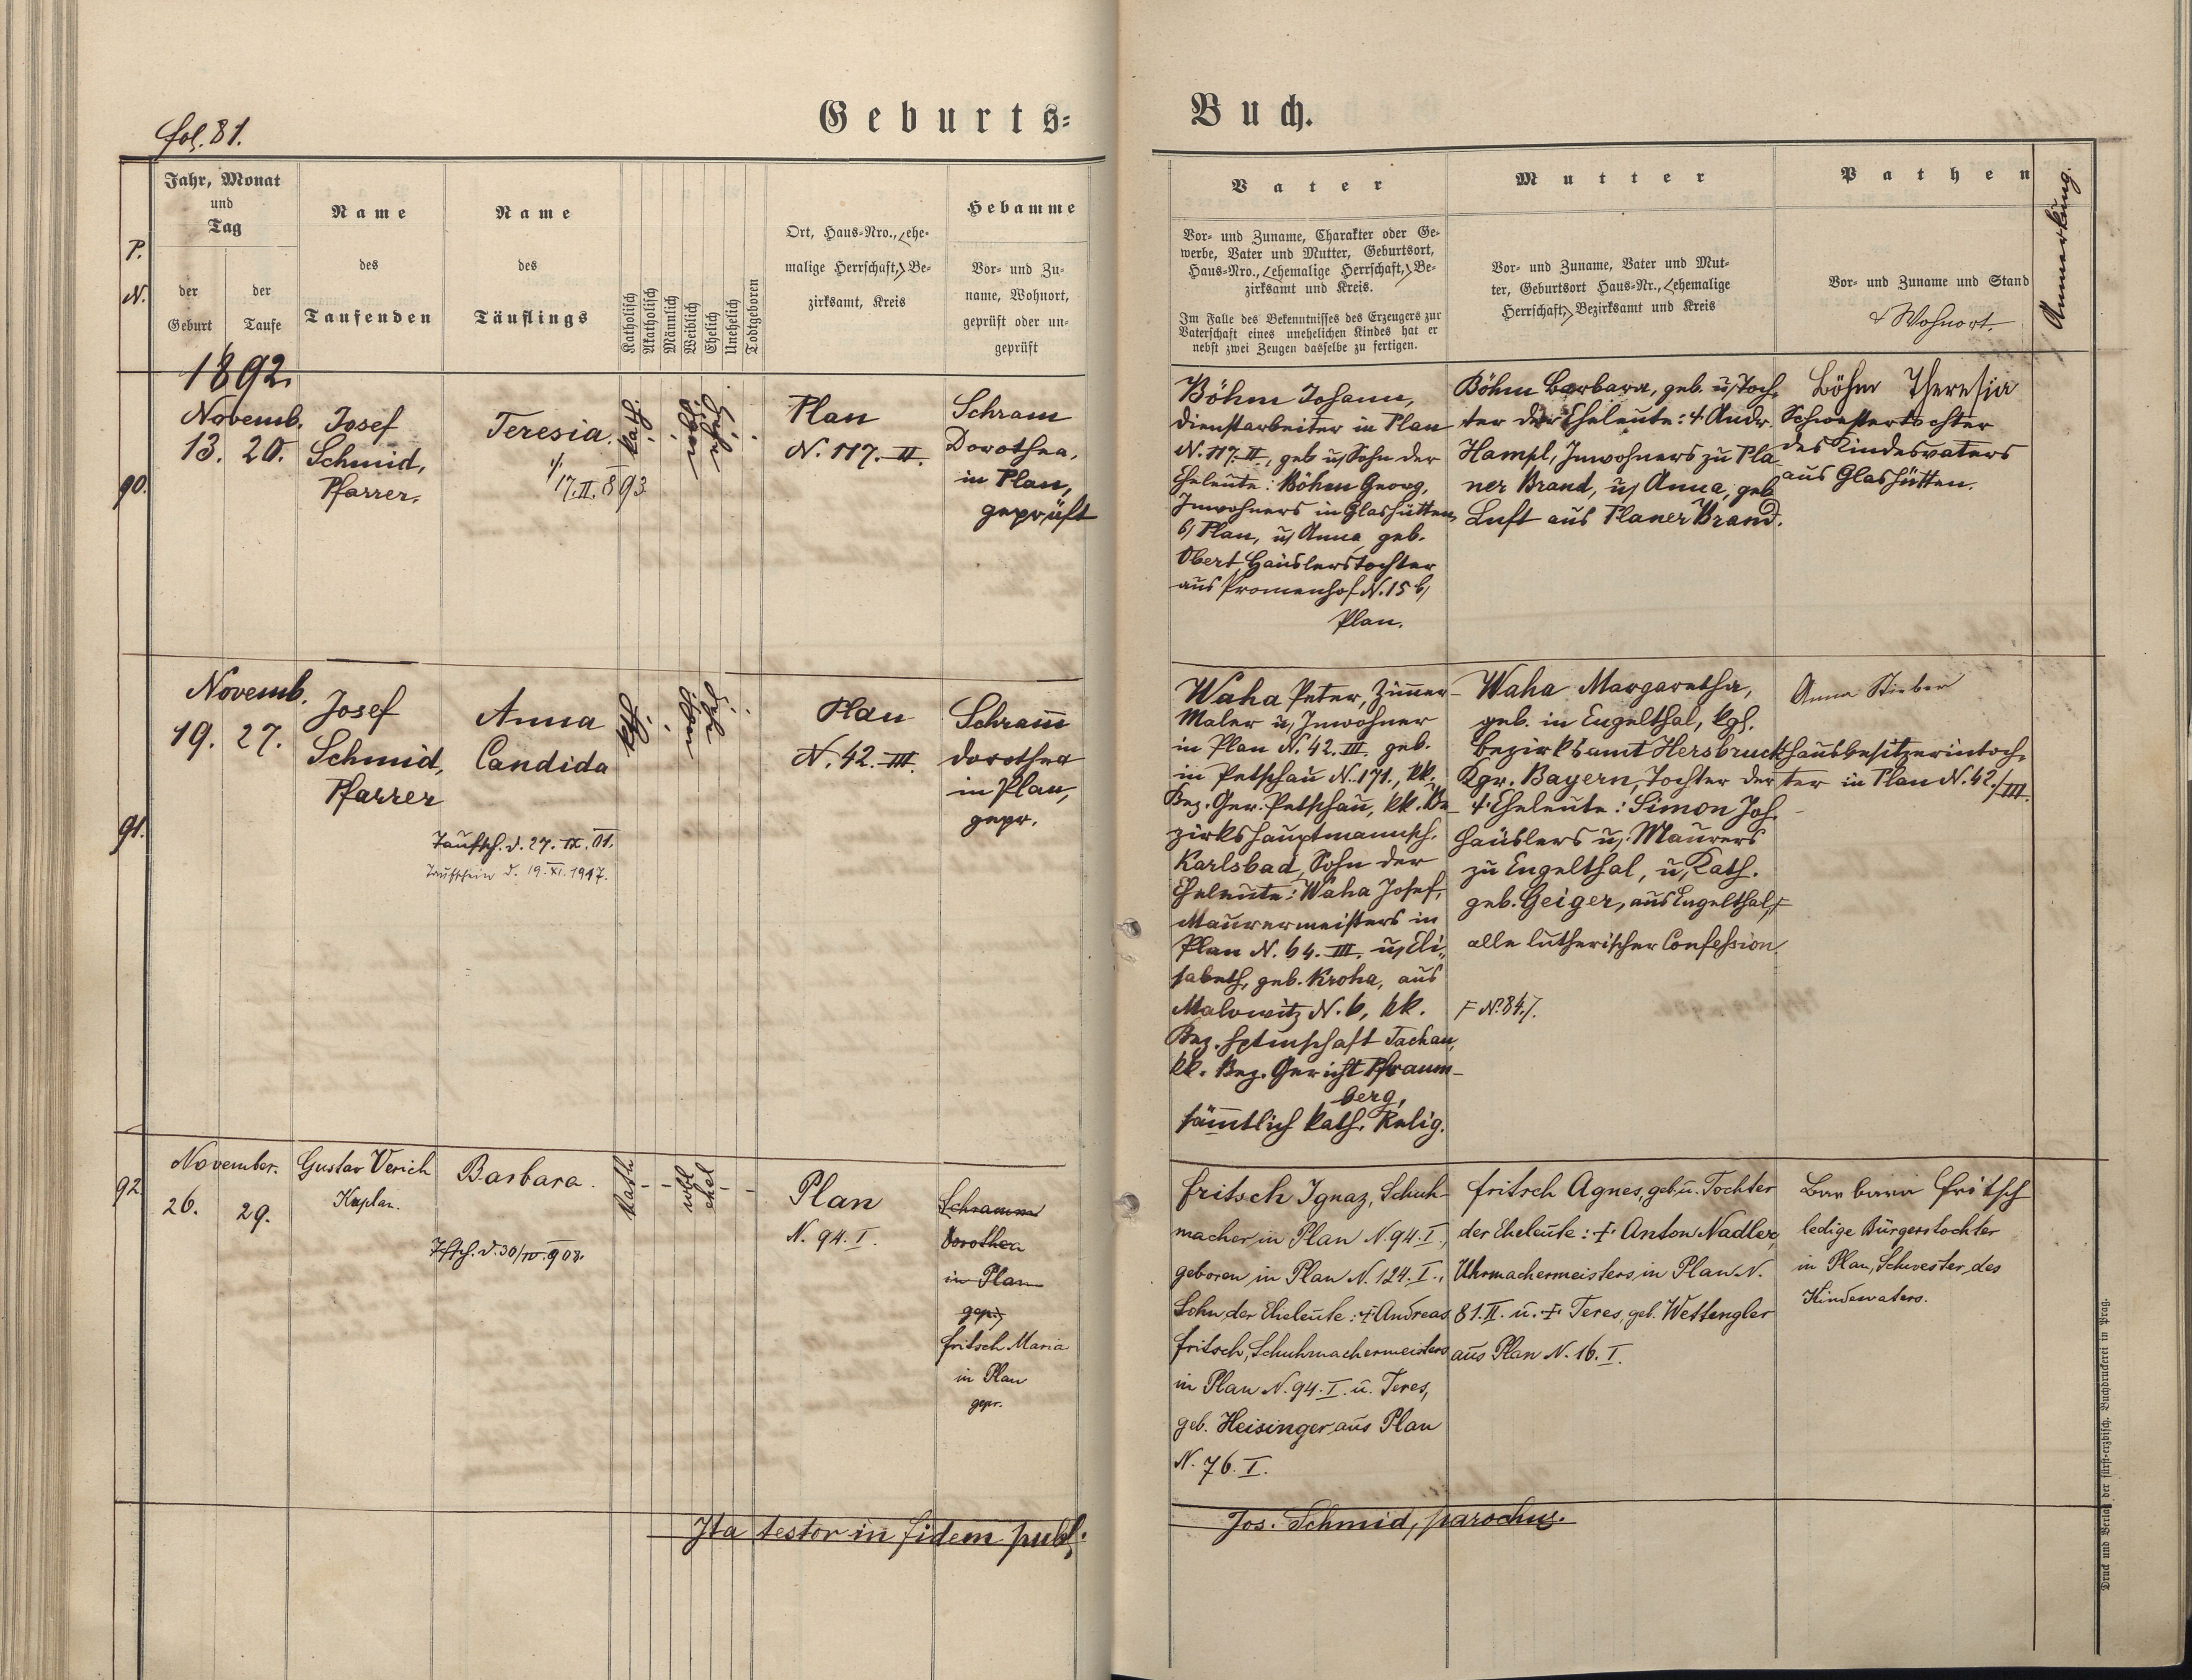 fol. 81.
Geburts=
Buch.
P.
N.
Jahr, Monat
und
Tag
der
Geburt
der
Taufe
Name
des
Taufenden
Name
des
Täuflings
Katholisch
Akatholisch
Männlich
Weiblich
Ehelich
Unehelich
Todtgeboren
Ort, Haus=Nro., (ehe=
malige Herrschaft,) Be=
zirksamt, Kreis
Hebamme
Vor= und Zu=
name, Wohnort,
geprüft oder un=
geprüft
Vater
Vor= und Zuname, Charakter oder Ge=
werbe, Vater und Mutter, Geburtsort,
Haus=Nro., (ehemalige Herrschaft,) Be=
zirksamt und Kreis.
Im Falle des Bekenntnisses des Erzeugers zur
Vaterschaft eines unehelichen Kindes hat er
nebst zwei Zeugen dasselbe zu fertigen.
Mutter
Vor= und Zuname, Vater und Mut=
ter, Geburtsort Haus=Nr., (ehemalige
Herrschaft,) Bezirksamt und Kreis
Pathen
Vor= und Zuname und Stand
& Wohnort.
Anmerkung.
1892.
90.
Novemb.
13. 20.
Josef
Schmid,
Pfarrer.
Teresia.
17. II. 893
kath.
Plan
N. 117. II.
Schram
Dorothea,
in Plan,
geprüft
Böhm Johann,
Dienstarbeiter in Plan
N. 117. II., geb u/ Sohn der
Eheleute: Böhm Georg,
Inwohners in Glashütten
b/ Plan, u/ Anna geb.
Obert, Häuslerstochter
aus Promenhof N. 15 b/
Plan.
Böhm Barbara, geb. u/ Toch=
ter der Eheleute: † Andr.
Hampl, Inwohners zu Pla=
ner Brand, u/ Anna, geb
Luft aus Planer Brand.
Böhm Theresia
Schwestertochter
des Kindesvaters
aus Glashütten.
91.
Novemb.
19. 27.
Josef
Schmid,
Pfarrer
Anna
Candida
Taufsch. d. 27. IX. 01.
Taufschein d. 19. XI. 1917.
kth.
Plan
N. 42. III.
Schram̄
Dorothea
in Plan,
gepr.
Waha Peter, Zim̄er-
Maler u/ Inwohner
in Plan N. 42. III, geb.
in Petschau N. 171., kk.
Bez. Ger. Petschau, kk. Be-
zirkshauptmannsch.
Karlsbad, Sohn der
Eheleute: Waha Josef,
Maurermeisters in
Plan N. 64. III. u/ Eli=
sabeth, geb. Kroha, aus
Malowitz N. 6, kk.
Bez. Hptmschaft Tachau,
kk. Bez. Gericht Pfraum-
berg,
säm̄tlich kath. Relig.
Waha Margaretha,
geb. in Engelthal, kgl.
Bezirksamt Hersbruck
Kgr. Bayern, Tochter der
† Eheleute: Simon Joh.
Häuslers u/ Maurers
zu Engelthal, u/ Kath.
geb. Geiger, aus Engelthal, F
alle lutherischer Confession.
F N. 84./.
Anna Stieber
Hausbesitzerintoch=
ter in Plan N. 42./III.
92
November.
26. 29.
Gustav Verich
Kaplan.
Barbara.
Tfsch. d. 30/IV. 908.
kath
wbl
ehel
Plan
N. 94. I.
Schramm
Dorothea
in Plan
gepr.
Fritsch Maria
in Plan
gepr.
Fritsch Ignaz, Schuh-
macher in Plan N. 94. I.,
geboren in Plan N. 124. I.,
Sohn der Eheleute: † Andreas
Fritsch, Schuhmachermeisters
in Plan N. 94. I. u. Teres,
geb. Heisinger aus Plan
N. 76. I.
Fritsch Agnes, geb. u. Tochter
der Eheleute: † Anton Nadler,
Uhrmachermeisters in Plan N.
81. II. u. † Teres, geb. Wettengler
aus Plan N. 16. I.
Barbara Fritsch
ledige Bürgerstochter
in Plan, Schwester des
Kindsvaters.
Ita testor in fidem publ:
Jos. Schmid, parochus.
Druck und Verlag der fürst=erzbisch. Buchdruckerei in Prag.